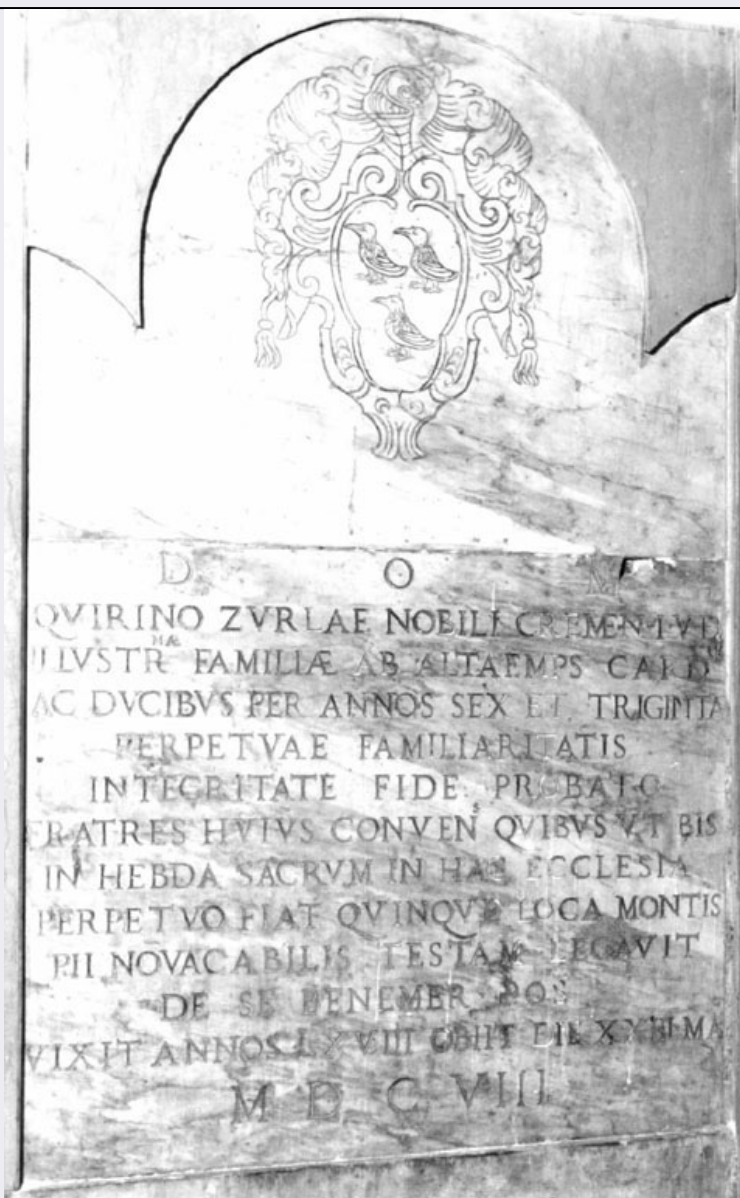 D O M
QVIRINO ZVRLAE NOBILI CREMEN I V D
ILLVSTRNAE FAMILIÆ AB ALTAEMPS CARD
AC DVCIBVS PER ANNOS SEX ET TRIGINTA
PERPETVAE FAMILIARITATIS
INTEGRITATE FIDE PROBATO
FRATRES HVIVS CONVENS QVIBVS VT BIS
IN HEBDA SACRVM IN HAC ECCLESIA
PERPETVO FIAT QVINQVE LOCA MONTIS
PII NOVACABILIS TESTAM LEGAVIT
DE SE BENEMER POS
VIXIT ANNOS LXVIII OBIIT DIE
M D C VIII